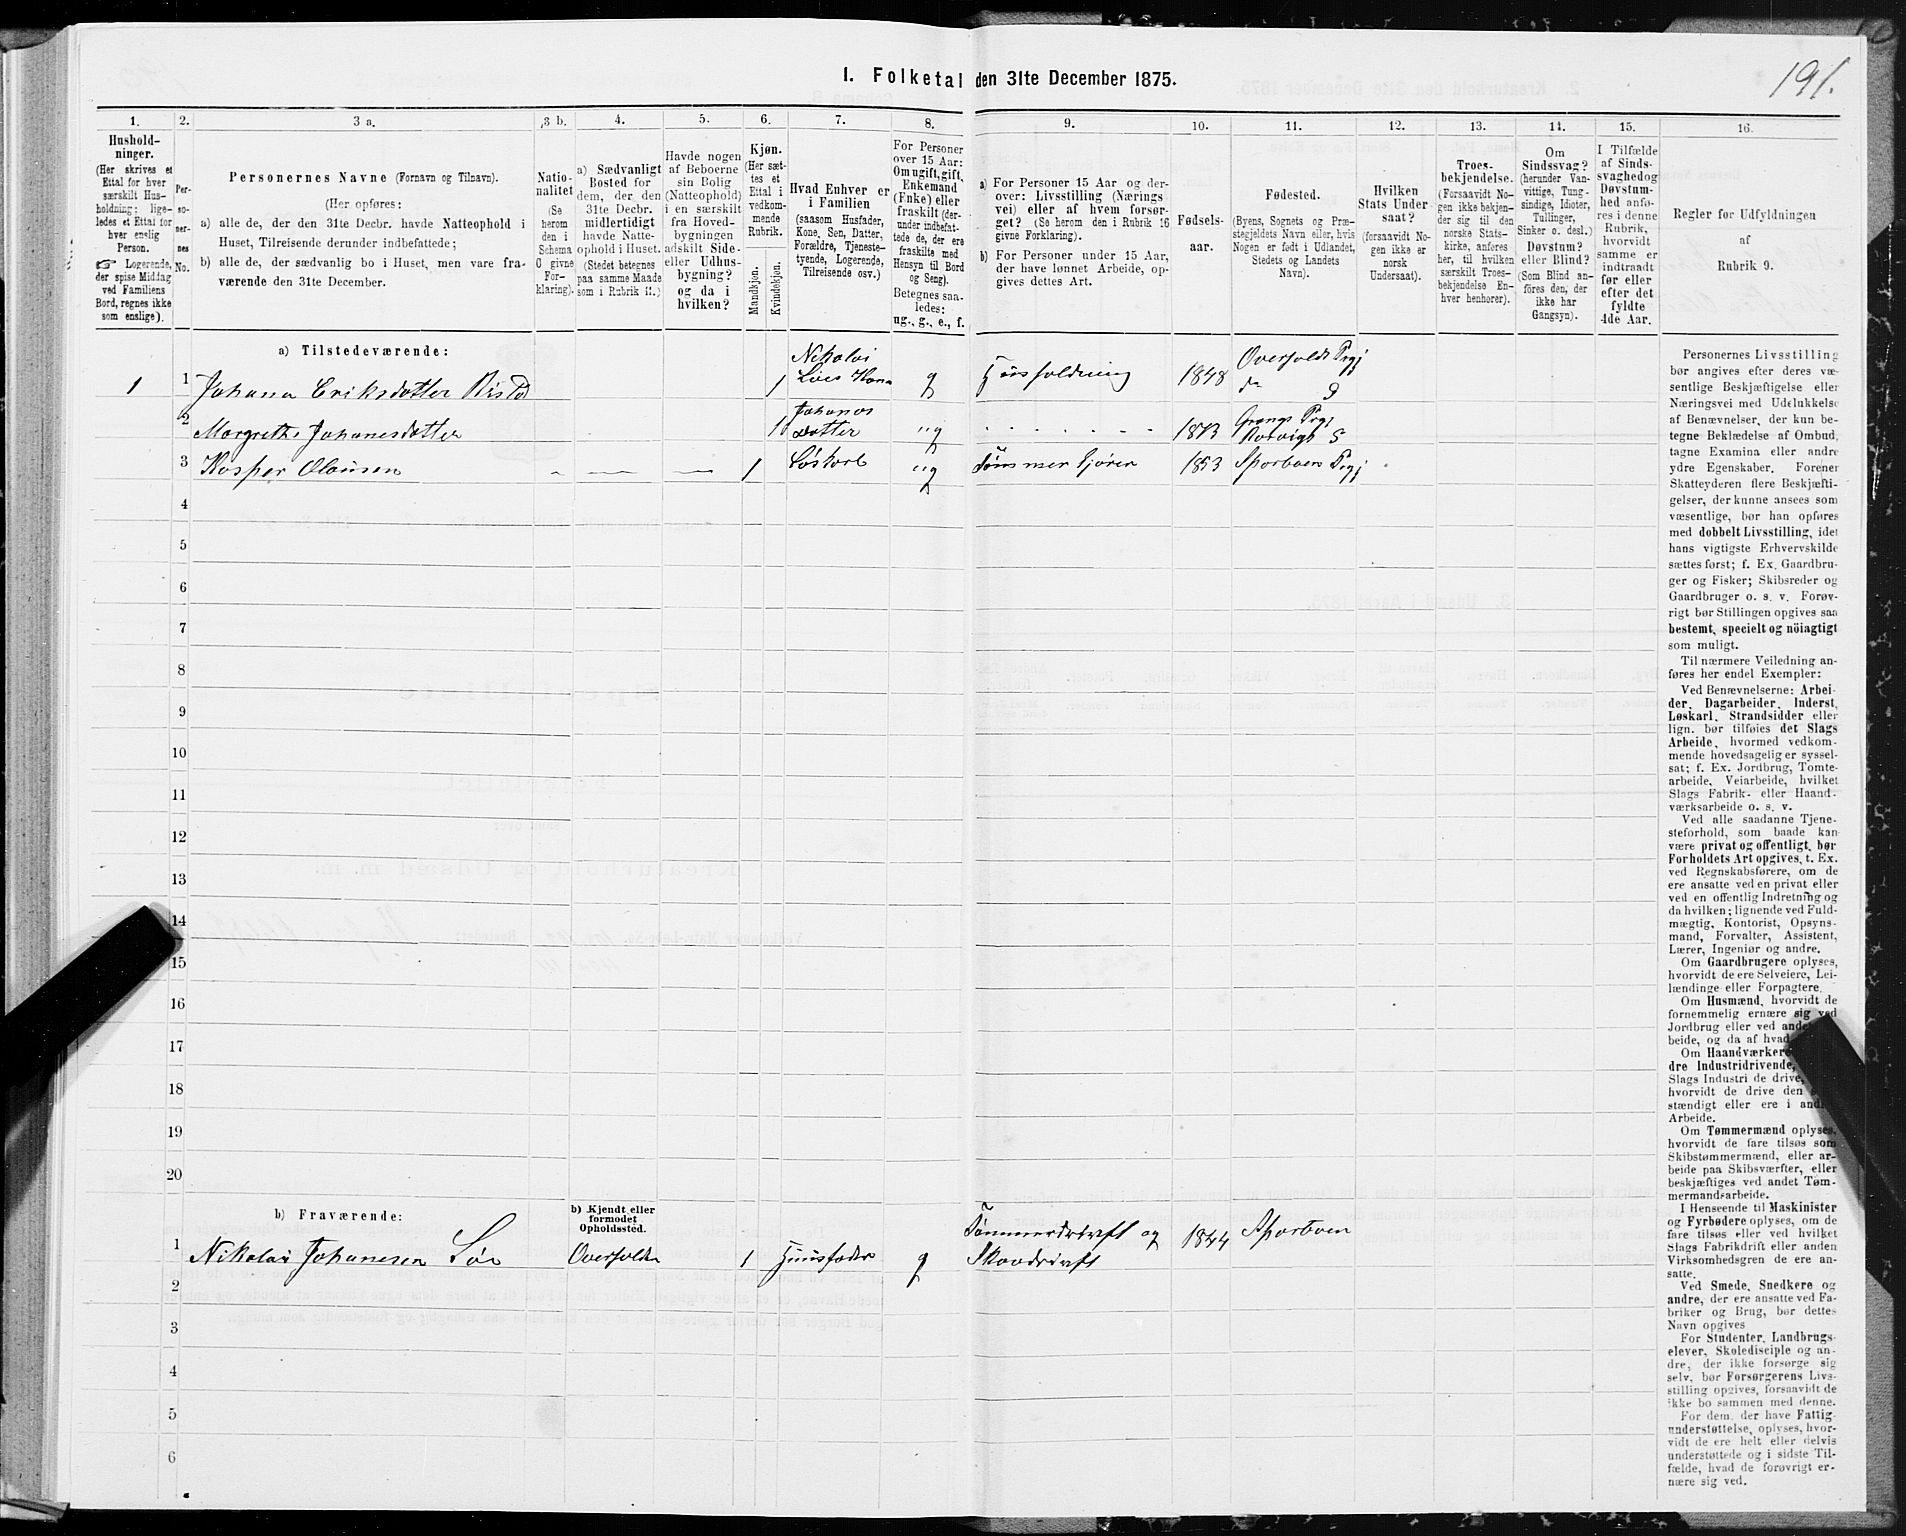 191.
1. Folketal den 31te December 1875.
1. 2. 3 a. 3 b. 4. 5. 6. 7. 8. 9. 10. 11. 12. 13. 14. 15. 16.
Hushold-
ninger.
(Her skrives et
Ettal for hver
særskilt Hus-
holdning; lige-
ledes et Ettal for
hver enslig
Person.
☞ Logerende,
der spise Middag
ved Familiens
Bord, regnes ikke
som enslige).
Per-
so-
ner-
nes
No.
Personernes Navne (Fornavn og Tilnavn).
(Her opføres:
a) alle de, der den 31te Decbr. havde Natteophold i
Huset, Tilreisende derunder indbefattede;
b) alle de, der sædvanlig bo i Huset, men vare fra-
værende den 31te December.
Natio-
nalitet
(Se
herom
den i
Schema
O givne
For-
klaring).
a) Sædvanligt
Bosted for
dem, der den
31te Decbr.
midlertidigt
havde Natte-
ophold i Huset.
(Stedet betegnes
paa samme Maade
som i Rubrik 11.)
Havde nogen
af Beboerne
sin Bolig
(Natteophold)
i en særskilt
fra Hoved-
bygningen
adskilt Side-
eller Udhus-
bygning?
og da i
hvilken?
Kjøn.
(Her sæt-
tes et
Ettal i
vedkom-
mende
Rubrik.
Mandkjøn.
Kvindekjøn.
Hvad Enhver er
i Familien
(saasom Husfader,
Kone, Søn, Datter,
Forældre, Tjeneste-
tyende, Logerende,
Tilreisende osv.)
For Personer
over 15 Aar:
Om ugift, gift,
Enkemand
(Enke) eller
fraskilt (der-
under indbefat-
tede de, der ere
fraskilte med
Hensyn til Bord
og Seng).
Betegnes saa-
ledes:
ug., g., e., f.
a) For Personer 15 Aar og der-
over: Livsstilling (Nærings
vei) eller af hvem forsør-
get? (Se herom den i Rubrik 16
givne Forklaring).
b) For Personer under 15 Aar,
der have lønnet Arbeide, op-
gives dettes Art.
Fødsels-
aar.
Fødested.
(Byens, Sognets og Præ-
stegjeldets Navn eller, hvis
Nogen er født i Udlandet,
Stedets og Landets
Navn).
Hvilken
Stats Under
saat?
(forsaavidt No-
gen ikke er
norsk
Undersaat).
Troes-
bekjendelse.
(Forsaavidt No-
gen ikke bekjen-
der sig til den
norske Stats-
kirke, anføres
her, til hvilken
særskilt Troes-
bekjendelse En-
hver henhører).
Om
Sindssvag?
(herunder Van-
vittige, Tung-
sindige, Idioter,
Tullinger,
Sinker o. desl.)
Døvstum?
eller Blind?
(Som Blind an-
föres den, der
ikke har
Gangsyn).
I Tilfælde
af Sinds-
svaghed og
Døvstum-
hed anfø-
res i denne
Rubrik,
hvorvidt
samme er
indtraadt
før eller
efter det
fyldte
4de Aar.
Regler for Udfyldningen
af
Rubrik 9.
a) Tilstedeværende:
1 1 Johana Eriksdatter Bistad 1 Nikolai Søes Kona g Huusholdning 1848 Overhalds Prgj
2 Margrethe Johanesdatter 1 Johanes Datter ug 1873 Grongs Prgj S
3 Kasper Olausen 1 Løskarl ug Tømmerkjører 1853 Sparboen Prgj
4
5
6
7
8
9
10
11
12
13
14
15
16
17
18
19
20
b) Fraværende:
b) Kjendt eller
formodet
Opholdssted.
1 Nikolai Johanesen Søe Overhalden 1 Huusfader g Tømmerdrift og Skovdrift 1844 Sparboen
2
3
4
5
6
Personernes Livsstilling
bør angives efter deres væ-
sentlige Beskjæftigelse eller
Næringsvei med Udelukkelse
af Benævnelser, der kun be-
tegne Beklædelse af Ombud,
tagne Examina eller andre
ydre Egenskaber. Forener
Skatteyderen flere Beskjæfti-
gelser, der kunne ansees som
væsentlige, bør han opføres
med dobbelt Livsstilling, idet
hans vigtigste Erhvervskilde
sættes først; f. Ex. Gaardbru-
ger og Fisker; Skibsreder og
Gaardbruger o. s. v. Forøv-
rigt bør Stillingen opgives saa
bestemt, specielt og nöiagtigt
som muligt.
Til nærmere Veiledning an-
føres her endel Exempler:
Ved Benævnelserne: Arbei-
der, Dagarbeider, Inderst,
Løskarl, Strandsidder eller
lign. bør tilføies det Slags
Arbeide, hvormed vedkom-
mende hovedsagelig er syssel-
sat; f. Ex. Jordbrug, Tomte-
arbeide, Veiarbeide, hvilket
Slags Fabrik- eller Haand-
værksarbeide o. s. v.
Ved alle saadanne Tjene-
steforhold, som baade kan
være privat og offentligt, bør
Forholdets Art opgives, t. Ex.
ved Regnskabsførere, om de
ere ansatte ved en privat eller
ved en offentlig Indretning og
da hvilken; lignende ved Fuld-
mægtig, Kontorist, Opsyns-
mand, Forvalter, Assistent,
Lærer, Ingeniør og andre.
Om Gaardbrugere oplyses,
hvorvidt de ere Selveiere, Lei-
lændinge eller Forpagtere.
Om Husmænd, hvorvidt de
fornemmelig ernære sig ved
Jordbrug eller ved andet
beide, og da af hvad
Om Haandværkere
dre Industridrivende,
Slags Industri de drive,
hvorvidt de drive den
stændigt eller ere i
Arbeide.
Om Tømmermænd oplyses,
hvorvidt de fare tilsøs som
Skibstømmermænd, eller ar-
beide paa Skibsværfter, eller
beskjæftiges ved andet Tøm-
mermandsarbeide.
I Henseende til Maskinister
og Fyrbødere oplyses, om de
fare tilsøs eller ved hvilket
Slags Fabrikdrift eller anden
Virksomhedsgren de ere an-
satte.
Ved Smede, Snedkere og
andre, der ere ansatte ved Fa-
briker og Brug, bør dettes
Navn opgives
For Studenter, Landbrugs-
elever, Skoledisciple og an-
dre, der ikke forsørge sig
selv, bør Forsørgerens Livs-
stilling opgives, forsaavidt de
ikke bo sammen med denne.
For dem, der have Fattig-
understøttelse, oplyses, hvor-
vidt de ere helt eller delvis
understøttede og i sidste Til-
fælde, hvad de forøvrigt er-
nære sig ved.